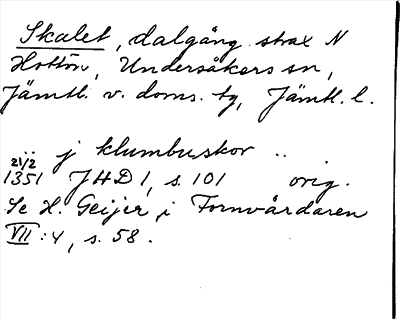 Skalet, dalgång strax N
Hottön, Undersåkers sn,
Jämtl. v. doms. tg, Jämtl. l.
.. j klumbuskor ..
21/2
1351 JHD 1, s. 101 orig.
Se H. Geijer i Fornvårdaren
VII:4, s. 58.